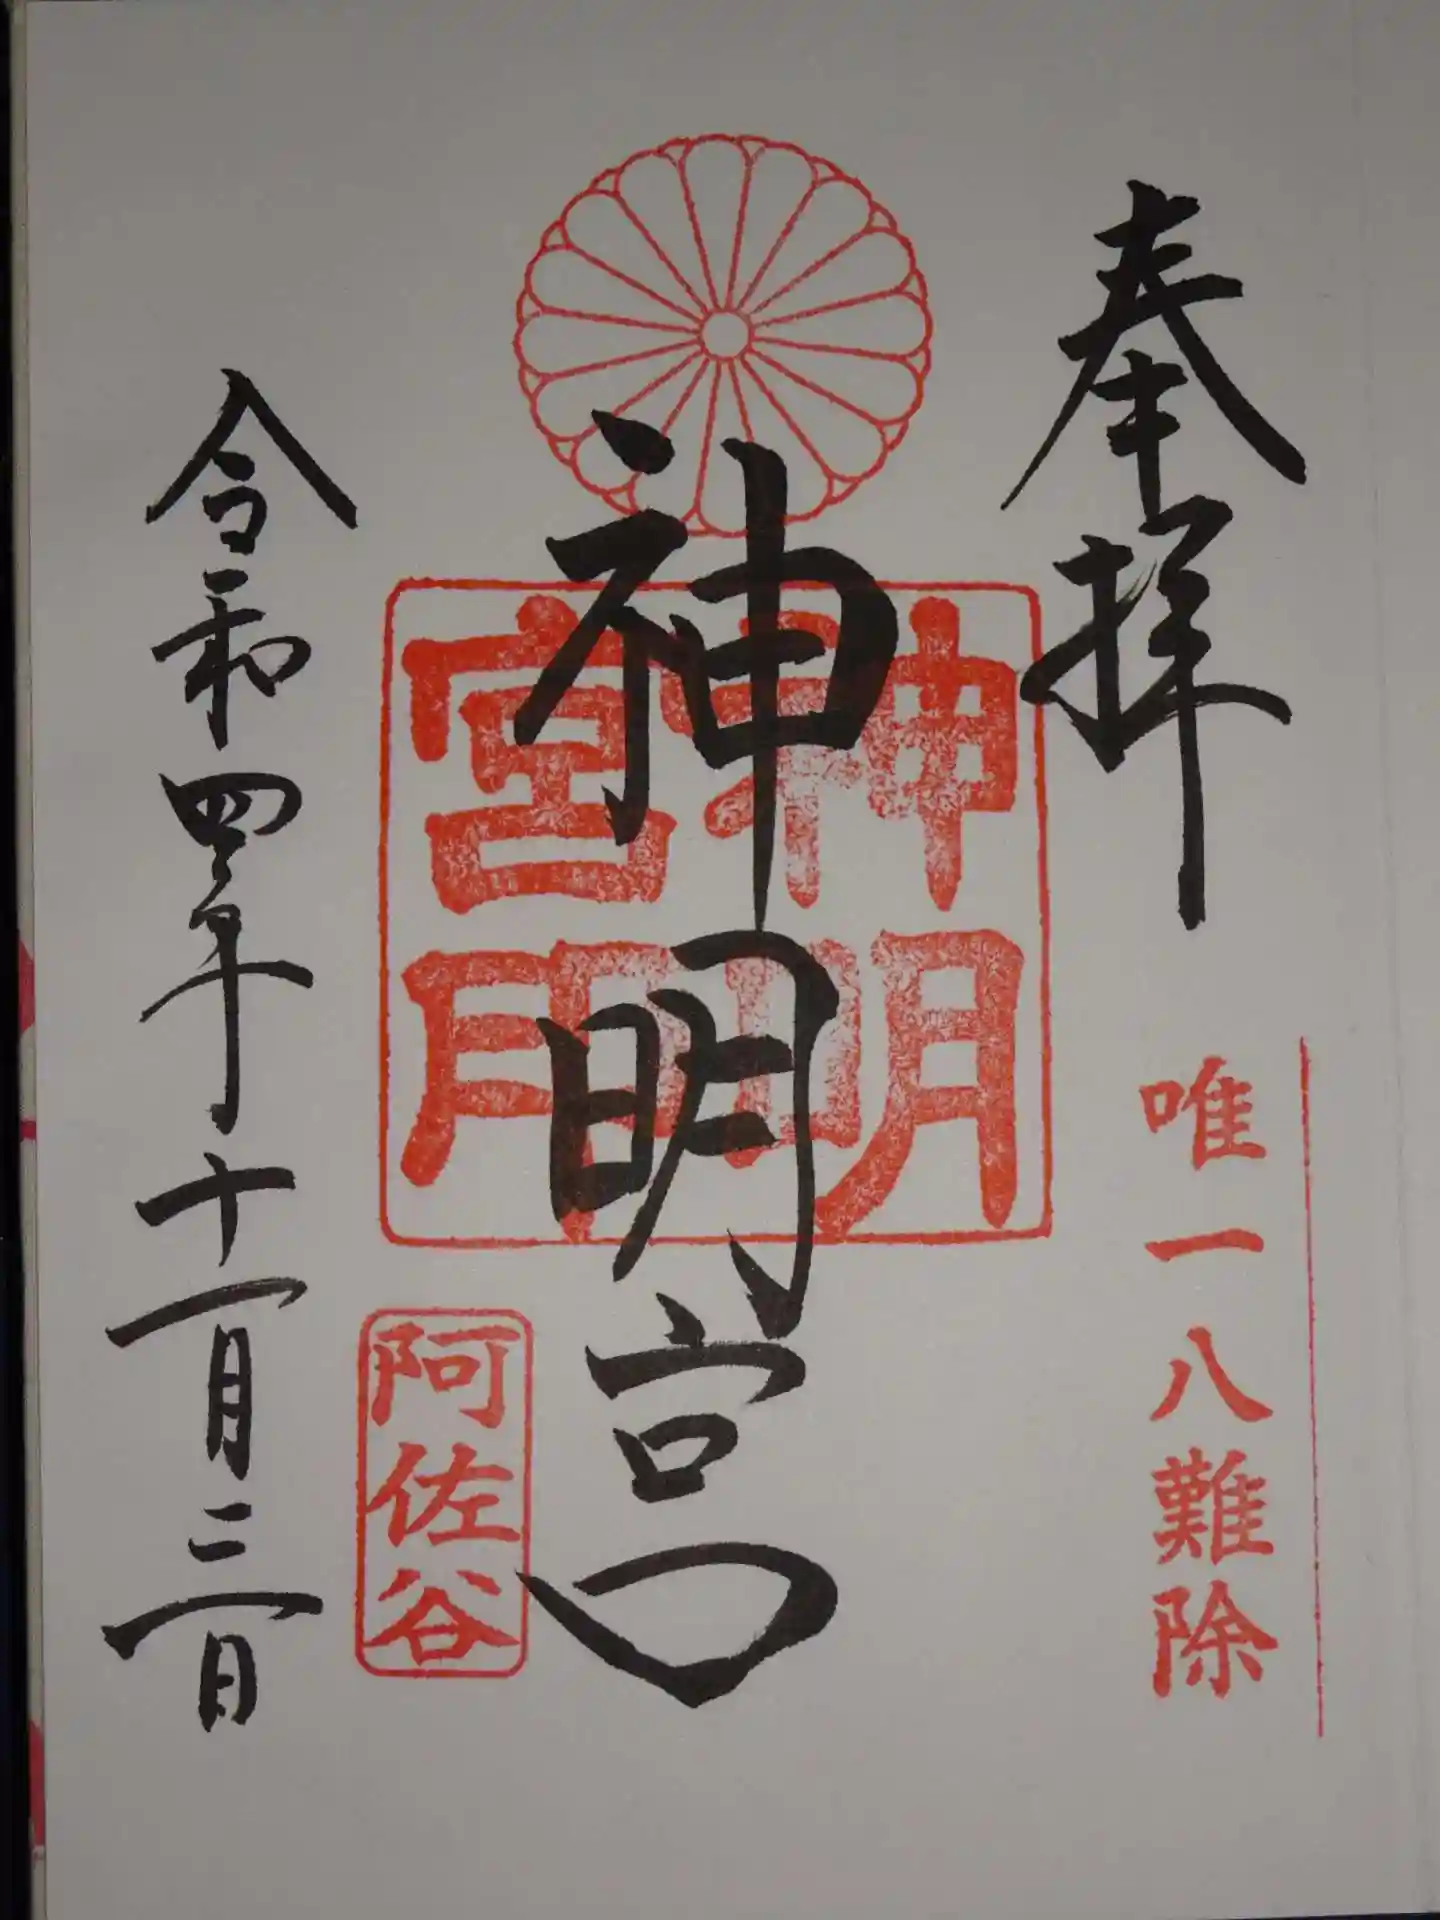 奉拝
唯一八難除
神明宮
神明
宮印
阿佐谷
令和四年十一月三日